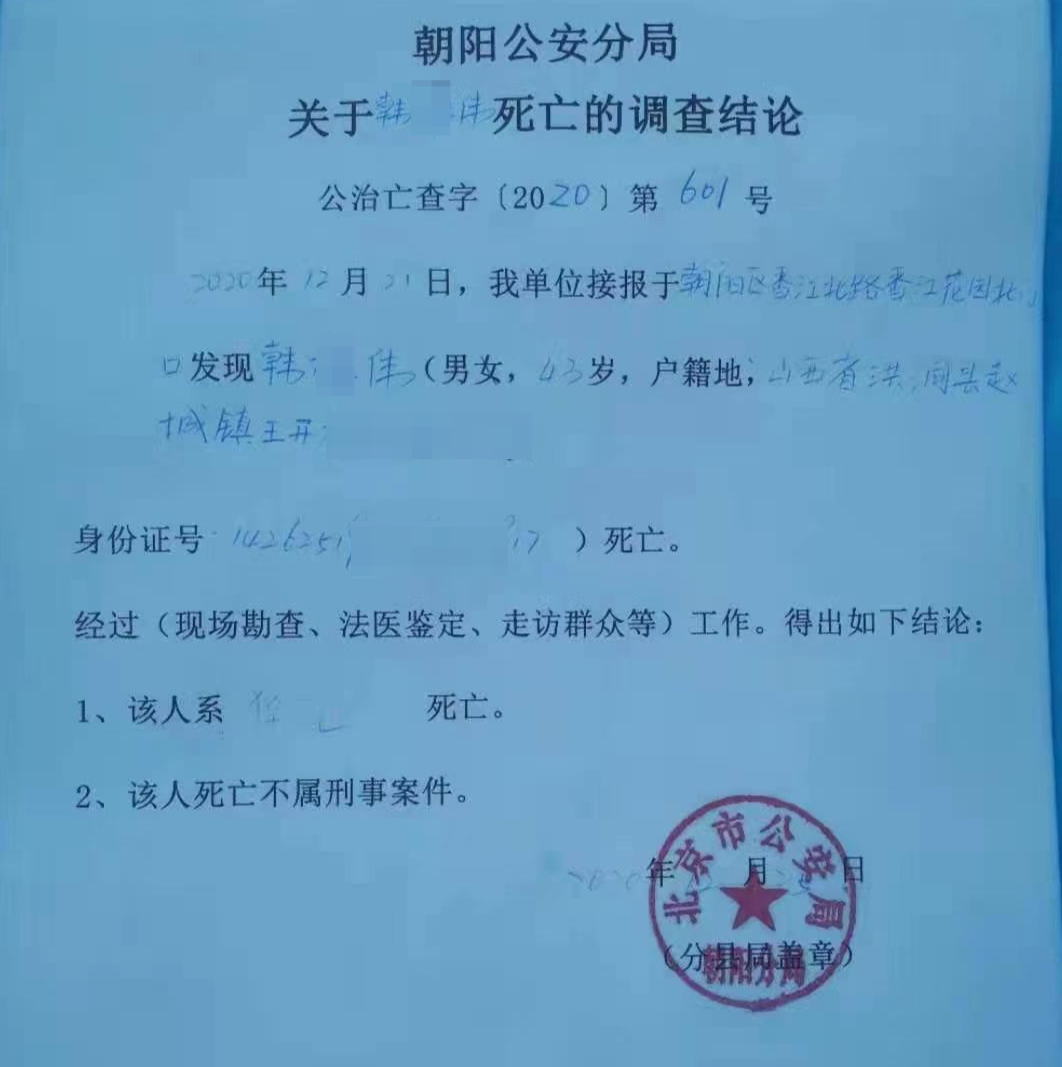 朝阳公安分局
关于韩 伟死亡的调查结论
公治亡查字〔2020〕第 601 号
2020年 12 月 21 日，我单位接报于朝阳区香江北路香江花园北门
口发现韩 伟（男女，43岁，户籍地；山西省洪洞县赵
城镇王开
身份证号 1426251 17 ）死亡。
经过（现场勘查、法医鉴定、走访群众等）工作。得出如下结论：
1、该人系 死亡。
2、该人死亡不属刑事案件。
2020年12月25日
（分县局盖章）
北京市公安局
朝阳分局